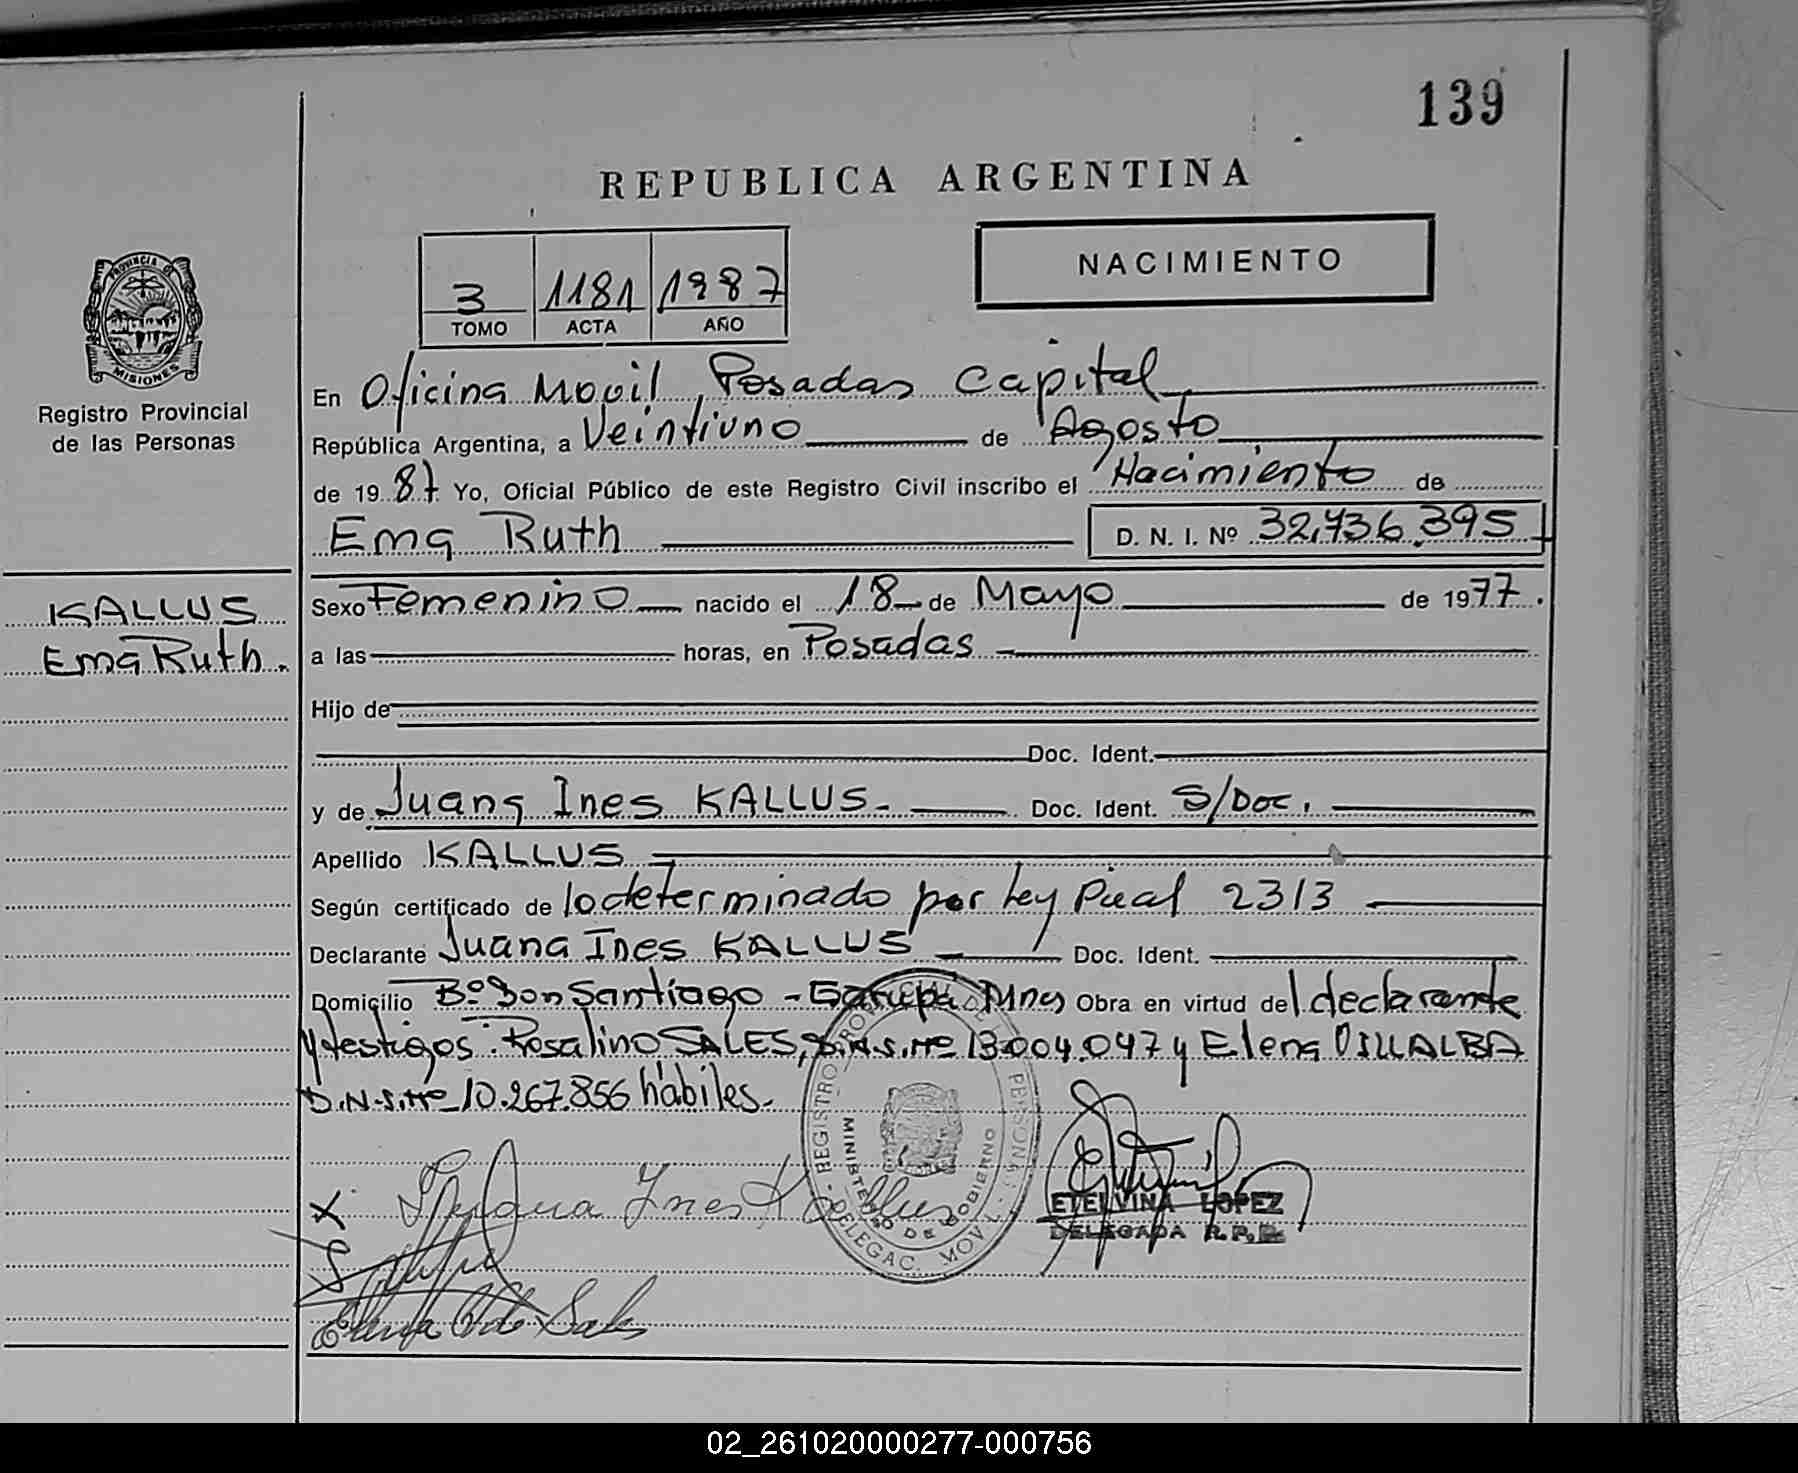 139
REPUBLICA ARGENTINA
3 1181 1987
TOMO ACTA AÑO
NACIMIENTO
PROVINCIA DE
MISIONES
Registro Provincial
de las Personas
KALLUS
Ema Ruth.
En Oficina Movil, Posadas Capital
República Argentina, a Veintiuno de Agosto
de 1987 Yo, Oficial Público de este Registro Civil inscribo el Nacimiento de
Ema Ruth D. N. I. Nº 32.736.395
Sexo Femenino nacido el 18 de Mayo de 1977.
a las horas, en Posadas
Hijo de
Doc. Ident.
y de Juana Ines KALLUS. Doc. Ident. S/Doc.
Apellido KALLUS
Según certificado de lo determinado por Ley Pcial 2313
Declarante Juana Ines KALLUS Doc. Ident.
Domicilio Bº Don Santiago - Garupá Mnes Obra en virtud del declarante
y testigos: Rosalino SALES, D.N.I. Nº 13.004.047 y Elena VILLALBA
D.N.I. Nº 10.267.856 hábiles.
REGISTRO PROVINCIAL DE LAS PERSONAS
MINISTERIO DE GOBIERNO
DELEGAC. MOVIL
X Juana Ines Kallus
ETELVINA LOPEZ
DELEGADA R.P.P.
Elena V de Sales
02_261020000277-000756